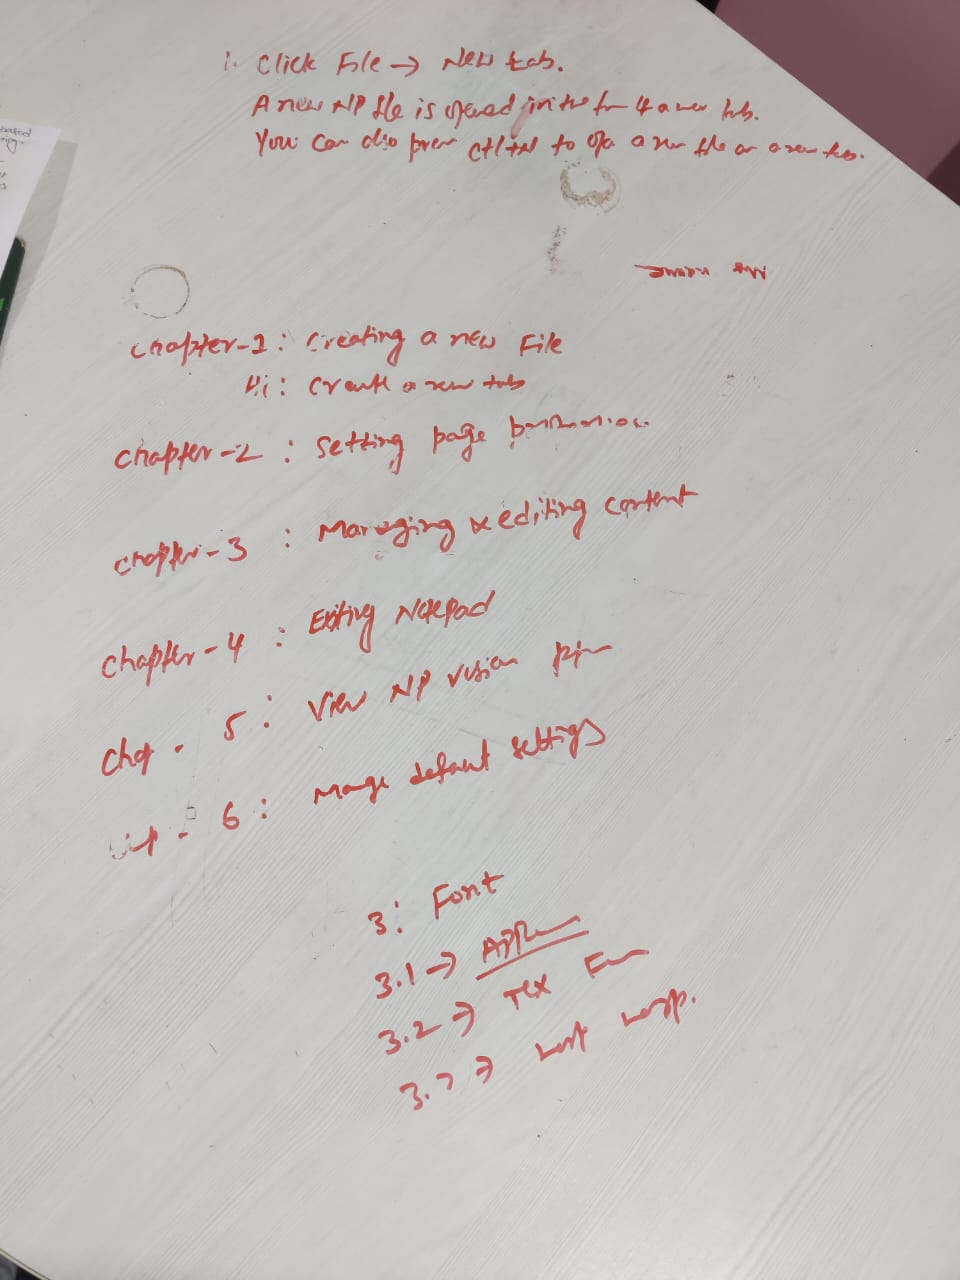 1. Click File → New tab.
A new NP file is opened in the form of a new tab.
You can also press Ctl+N to open a new file or a new tab.
Chapter-1: Creating a new File
Hi: Create a new tab
Chapter-2: Setting page
Chapter-3: Managing & editing content
Chapter-4: Exiting Notepad
Chap. 5: View NP version
6: Manage default settings
3: Font
3.1 →
3.2 →
3.3 →